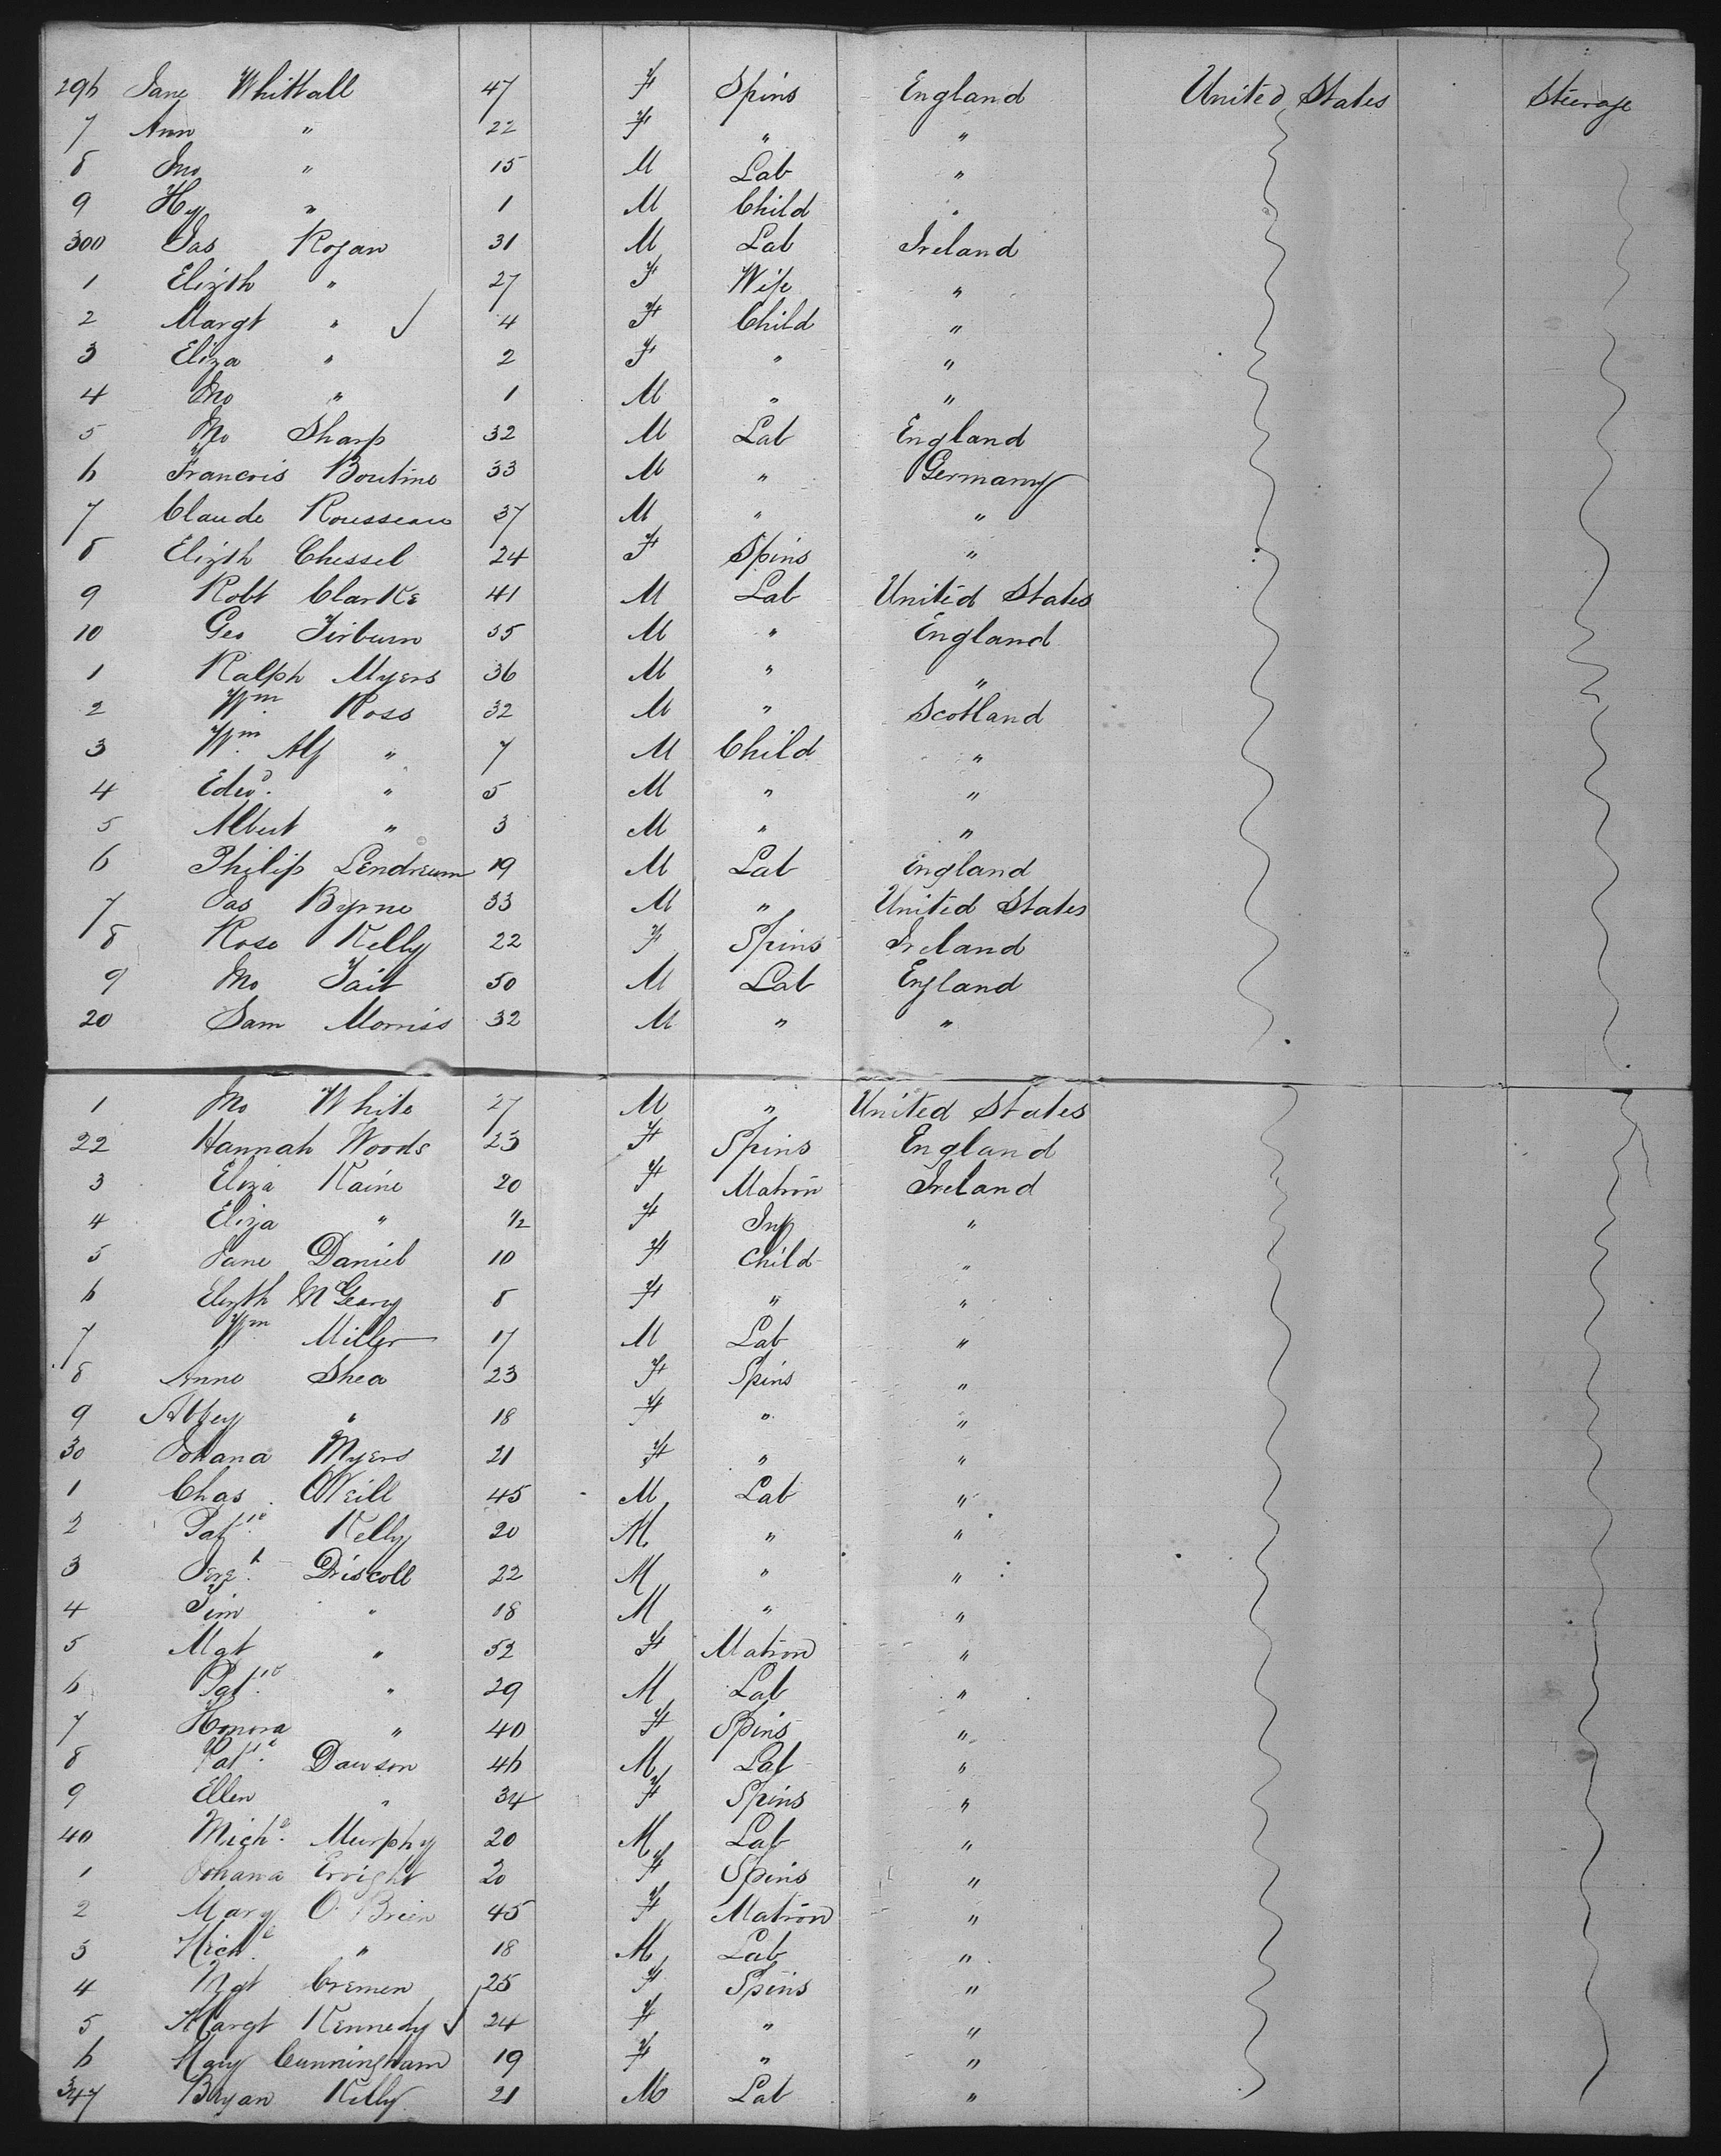 296 Jane Whittall 47 F Spins England United States Steerage
7 Ann " 22 F " "
8 Jno " 15 M Lab "
9 Hy " 1 M Child "
300 Jas Rogan 31 M Lab Ireland
1 Elizth " 27 F Wife "
2 Margt " 4 F Child "
3 Eliza " 2 F " "
4 Jno " 1 M " "
5 Jno Sharp 32 M Lab England
6 Francois Boutine 33 M " Germany
7 Claude Rousseau 37 M " "
8 Elizth Chessel 24 F Spins "
9 Robt Clarke 41 M Lab United States
10 Geo 35 M " England
1 Ralph Myers 36 M " "
2 Wm Ross 32 M " Scotland
3 Wm Alf " 7 M Child "
4 Edwd. " 5 M " "
5 Albert " 3 M " "
6 Philip Lendreum 19 M Lab England
7 Jas Byrne 33 M " United States
8 Rose Kelly 22 F Spins Ireland
9 Jno Tait 50 M Lab England
20 Sam Morriss 32 M " "
1 Jno White 27 M " United States
22 Hannah Woods 23 F Spins England
3 Eliza Kaine 20 F Matron Ireland
4 Eliza " 1/2 F Inf "
5 Jane Daniel 10 F Child "
6 Elizth McGeary 8 F " "
7 Wm Miller 17 M Lab "
8 Anne Shea 23 F Spins "
9 Abbey " 18 F " "
30 Johana Myers 21 F " "
1 Chas O'Neill 45 M Lab "
2 Patk. Kelly 20 M " "
3 Jereh. Driscoll 22 M " "
4 Tim " 18 M " "
5 Mgt " 52 F Matron "
6 Patk. " 29 M Lab "
7 Honora " 40 F Spins "
8 Patk. Dawson 46 M Lab "
9 Ellen " 34 F Spins "
40 Michl. Murphy 20 M Lab "
1 Johana Enright 20 F Spins "
2 Mary O'Brien 45 F Matron "
3 Michl. " 18 M Lab "
4 Mgt Cremen 25 F Spins "
5 Margt Kennedy 24 F " "
6 Mary Cunningham 19 F " "
347 Bryan Kelly 21 M Lab "